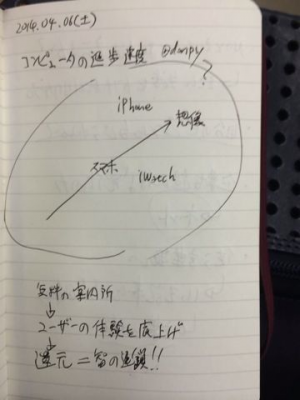 2014.04.06(土)
コンピュータの進歩速度 @dmpy
?
iPhone
想像
スマホ
iWatch
案内所
↓
ユーザーの体験を底上げ
↓
還元 = 智の連鎖!!